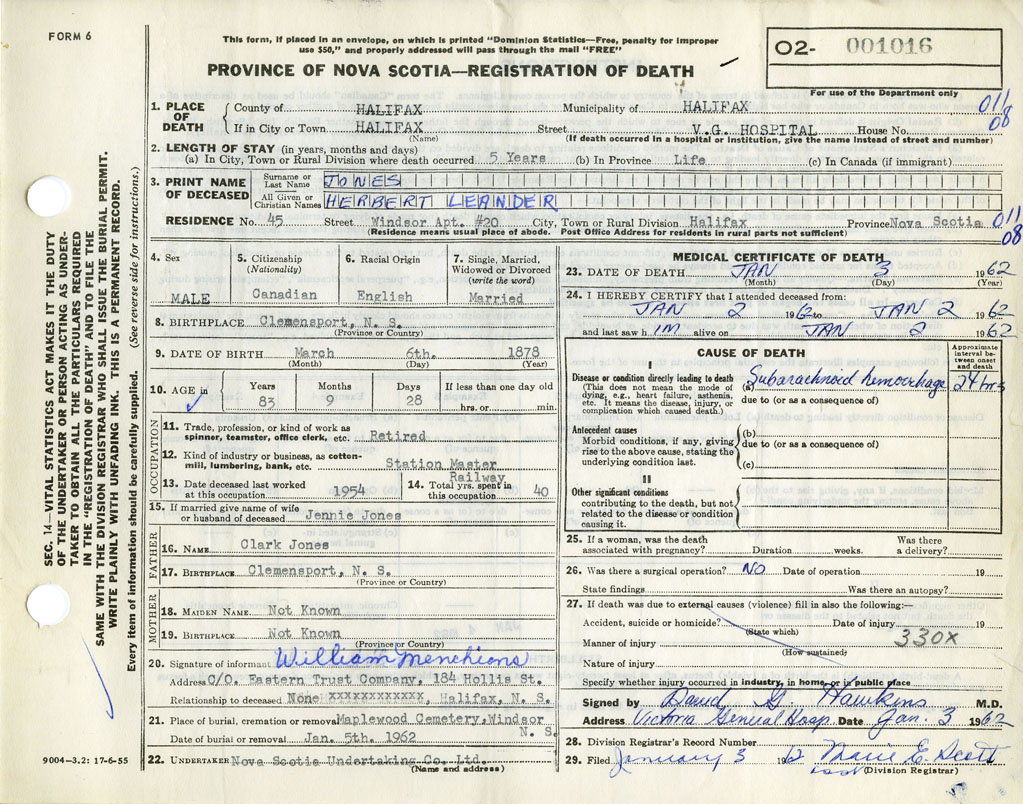 FORM 6
This form, if placed in an envelope, on which is printed "Dominion Statistics—Free, penalty for improper
use $50," and properly addressed will pass through the mail "FREE"
PROVINCE OF NOVA SCOTIA—REGISTRATION OF DEATH
O2- 001016
For use of the Department only
1. PLACE OF DEATH
County of HALIFAX Municipality of HALIFAX 011
If in City or Town HALIFAX Street V.G. HOSPITAL House No. 08
(Name) (If death occurred in a hospital or institution, give the name instead of street and number)
2. LENGTH OF STAY (in years, months and days)
(a) In City, Town or Rural Division where death occurred 5 Years (b) In Province Life (c) In Canada (if immigrant)
3. PRINT NAME OF DECEASED
Surname or Last Name JONES
All Given or Christian Names HERBERT LEANDER
RESIDENCE No. 45 Street Windsor Apt. #20 City, Town or Rural Division Halifax Province Nova Scotia 011
(Residence means usual place of abode. Post Office Address for residents in rural parts not sufficient) 08
4. Sex MALE
5. Citizenship (Nationality) Canadian
6. Racial Origin English
7. Single, Married, Widowed or Divorced (write the word) Married
8. BIRTHPLACE Clemensport, N. S.
(Province or Country)
9. DATE OF BIRTH March 6th. 1878
(Month) (Day) (Year)
10. AGE in Years Months Days If less than one day old
83 9 28 hrs. or min.
OCCUPATION
11. Trade, profession, or kind of work as
spinner, teamster, office clerk, etc. Retired
12. Kind of industry or business, as cotton-
mill, lumbering, bank, etc. Station Master
Railway
13. Date deceased last worked
at this occupation 1954
14. Total yrs. spent in
this occupation 40
15. If married give name of wife
or husband of deceased Jennie Jones
FATHER
16. NAME Clark Jones
17. BIRTHPLACE Clemensport, N. S.
(Province or Country)
MOTHER
18. MAIDEN NAME Not Known
19. BIRTHPLACE Not Known
(Province or Country)
20. Signature of informant William Menchions
Address C/O. Eastern Trust Company, 184 Hollis St.
Relationship to deceased None xxxxxxxxxxxx, Halifax, N. S.
21. Place of burial, cremation or removal Maplewood Cemetery, Windsor
N. S.
Date of burial or removal Jan. 5th. 1962
22. UNDERTAKER Nova Scotia Undertaking Co. Ltd.
(Name and address)
MEDICAL CERTIFICATE OF DEATH
23. DATE OF DEATH JAN 3 1962
(Month) (Day) (Year)
24. I HEREBY CERTIFY that I attended deceased from:
JAN 2 1962 to JAN 2 1962
and last saw him alive on JAN 2 1962
CAUSE OF DEATH
Approximate interval between onset and death
I
Disease or condition directly leading to death
(This does not mean the mode of
dying, e.g., heart failure, asthenia,
etc. It means the disease, injury, or
complication which caused death.)
(a) Subarachnoid hemorrhage 24 hrs
due to (or as a consequence of)
Antecedent causes
Morbid conditions, if any, giving
rise to the above cause, stating the
underlying condition last.
(b)
due to (or as a consequence of)
(c)
II
Other significant conditions
contributing to the death, but not
related to the disease or condition
causing it.
25. If a woman, was the death
associated with pregnancy? Duration weeks. Was there
a delivery?
26. Was there a surgical operation? NO Date of operation 19
State findings Was there an autopsy?
27. If death was due to external causes (violence) fill in also the following:—
Accident, suicide or homicide? Date of injury 19
(State which)
Manner of injury 330X
(How sustained)
Nature of injury
Specify whether injury occurred in industry, in home, or in public place
Signed by David G. Hawkins M.D.
Address Victoria General Hosp. Date Jan. 3 1962
28. Division Registrar's Record Number
29. Filed January 3 1962 Marie E. Scott
(Division Registrar)
SEC. 14—VITAL STATISTICS ACT MAKES IT THE DUTY
OF THE UNDERTAKER OR PERSON ACTING AS UNDER-
TAKER TO OBTAIN ALL THE PARTICULARS REQUIRED
IN THE "REGISTRATION OF DEATH" AND TO FILE THE
SAME WITH THE DIVISION REGISTRAR WHO SHALL ISSUE THE BURIAL PERMIT.
WRITE PLAINLY WITH UNFADING INK. THIS IS A PERMANENT RECORD.
Every item of information should be carefully supplied. (See reverse side for instructions.)
9004-3.2: 17-6-55